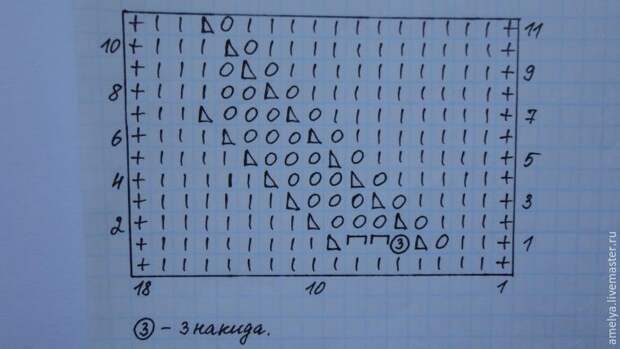 + I I ◺ O I I I I I I I I I I I I + 11
10 + I I I ◺ O I I I I I I I I I I I +
+ I I I O ◺ O I I I I I I I I I I + 9
8 + I I I O O ◺ O I I I I I I I I I +
+ I I ◺ O O O ◺ O I I I I I I I I + 7
6 + I I I ◺ O O O ◺ O I I I I I I I +
+ I I I I ◺ O O O ◺ O I I I I I I + 5
4 + I I I I I ◺ O O O ◺ O I I I I I +
+ I I I I I I ◺ O O O ◺ O I I I I + 3
2 + I I I I I I I ◺ O O O ◺ O I I I +
+ I I I I I I I I ◺ ┌┐ ┌┐ ③ ◺ O I I + 1
+ I I I I I I I I I I I I I I I I +
18 10 1
③ - 3 накида.
amelya.livemaster.ru